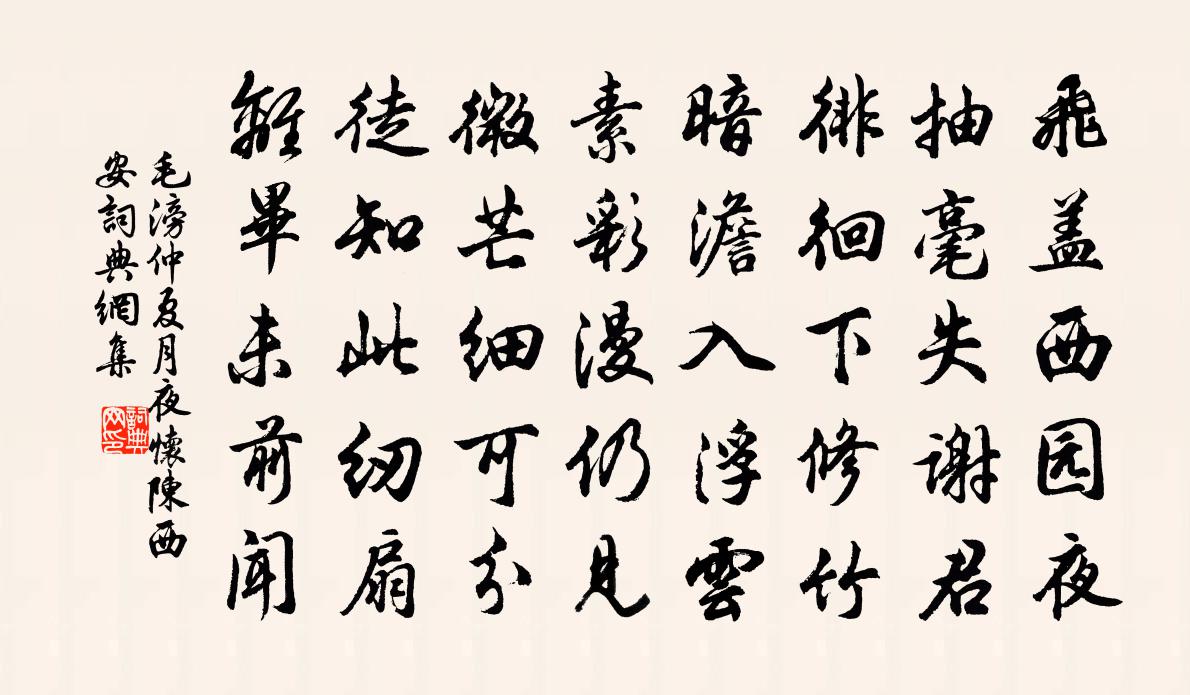 飛盖西园夜
抽毫失谢君
徘徊下修竹
暗澹入浮雲
素彩漫仍見
微芒细可分
徒知此纫扇
離畢未前闻
毛滂仲夏月夜懷陳西
安詞典網集
詞典
网印